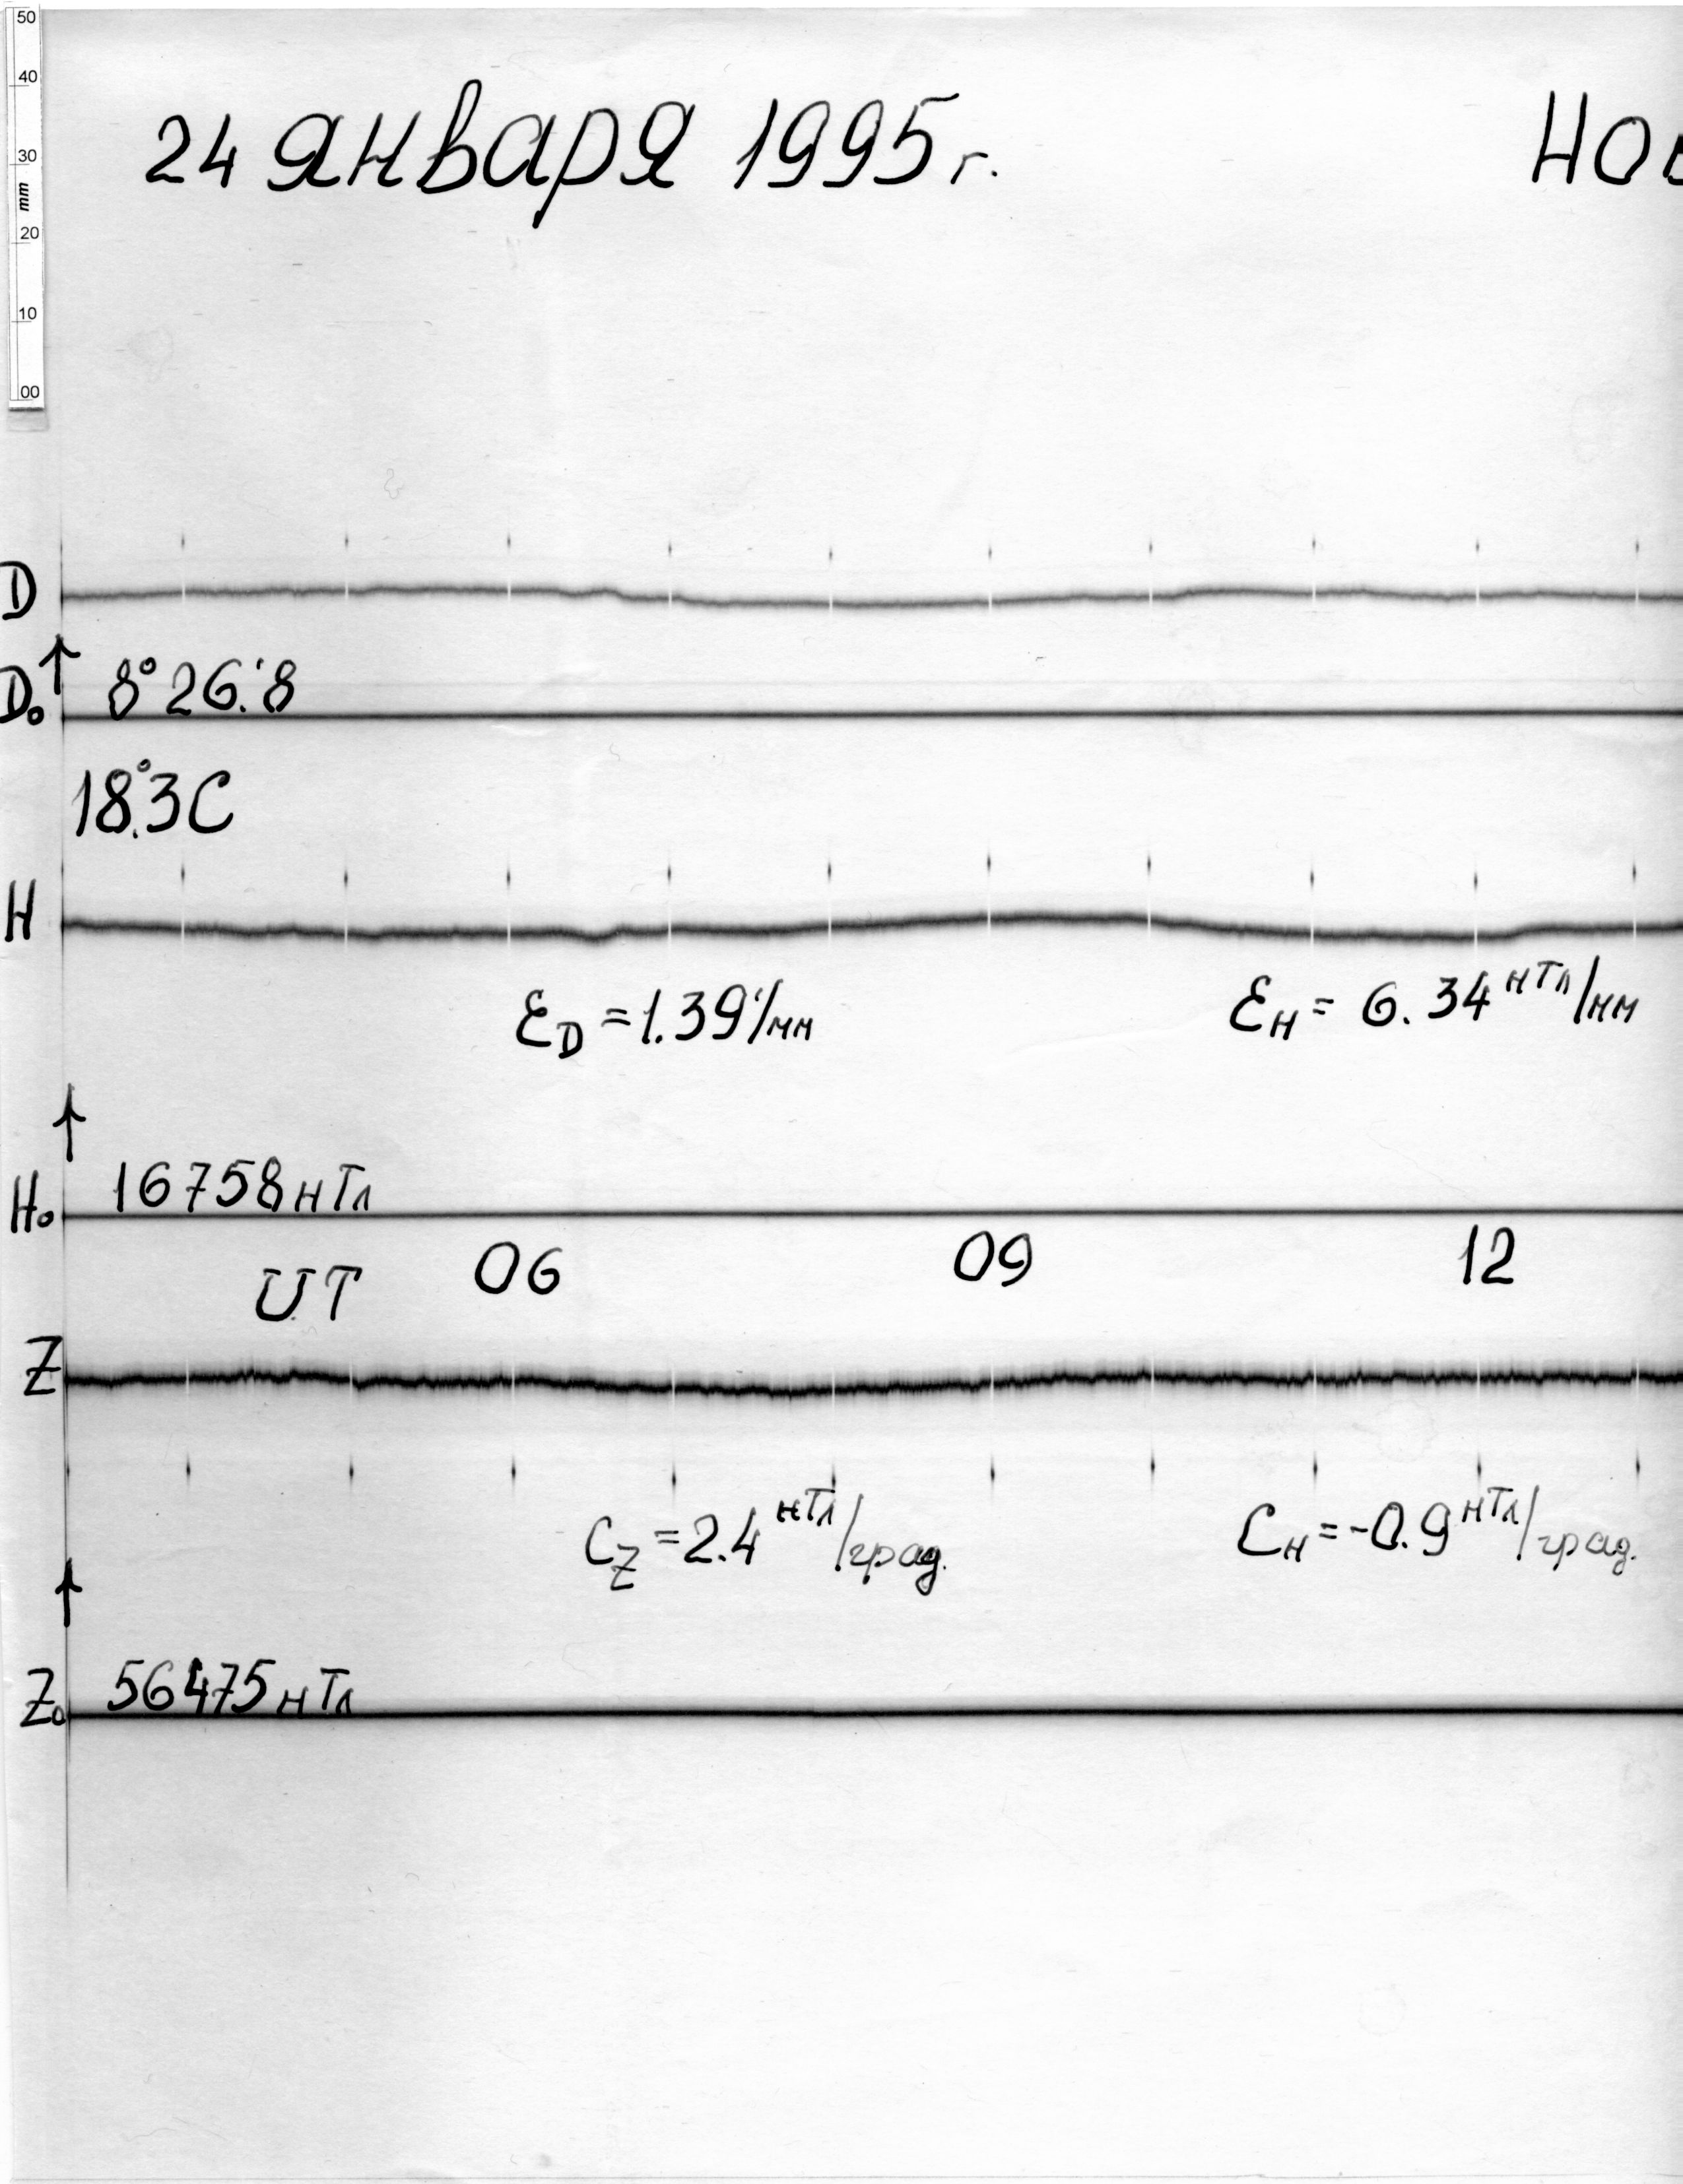 50
40
30
mm
20
10
00
24 января 1995 г.
D
D₀ 8°26.'8
18.°3C
H
ℰD = 1.39'/мм ℰH = 6.34 нТл/мм
H₀ 16758 нТл
UT 06 09 12
Z
CZ = 2.4 нТл/град. CH = -0.9 нТл/град.
Z₀ 56475 нТл